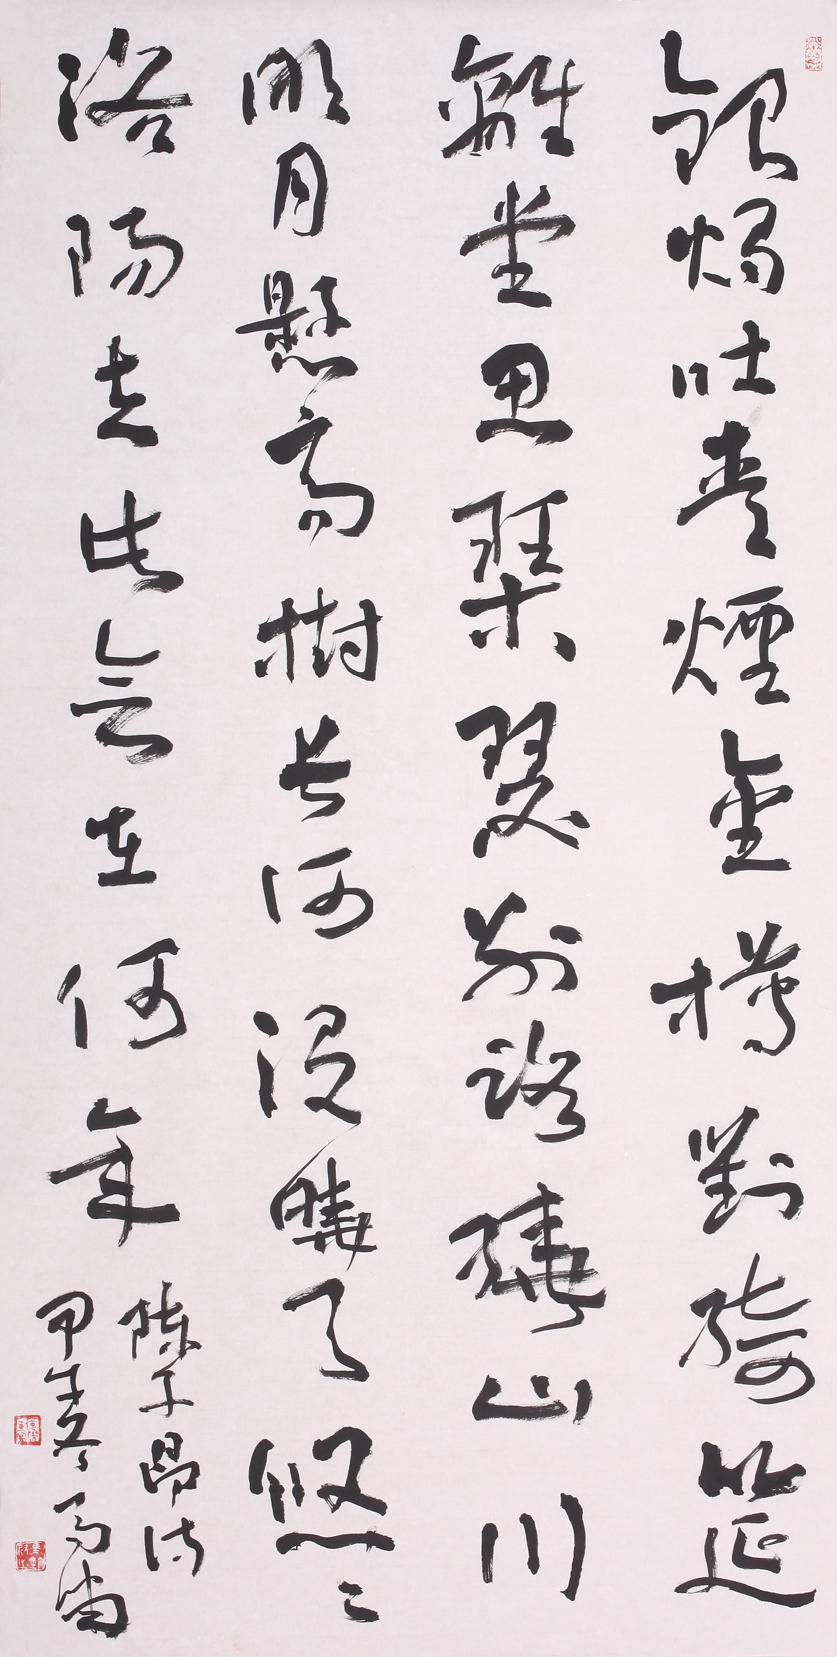 銀燭吐青煙金樽對綺筵
離堂思琴瑟別路繞山川
明月懸高樹長河沒曉天悠々
洛陽去此會在何年
陳子昂詩
甲午冬馬